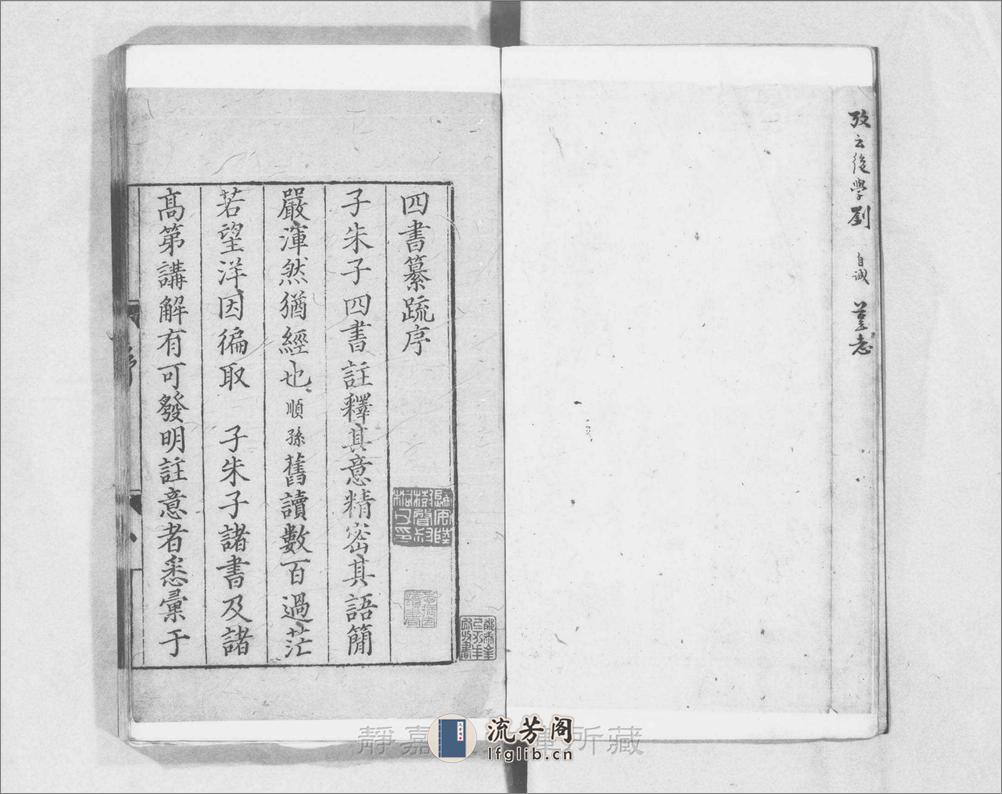 攷云後學劉 自誠 謹志
四書纂疏序
子朱子四書註釋其意精密其語簡
嚴渾然猶經也順孫舊讀數百過茫
若望洋因徧取 子朱子諸書及諸
髙第講解有可發明註意者悉彙于
序
靜嘉 所藏
流芳阁
lfglib.cn